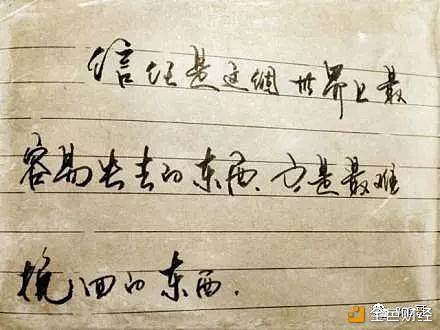 信任是这個世界上最
容易失去的东西、也是最难
挽回的东西.
金色财经